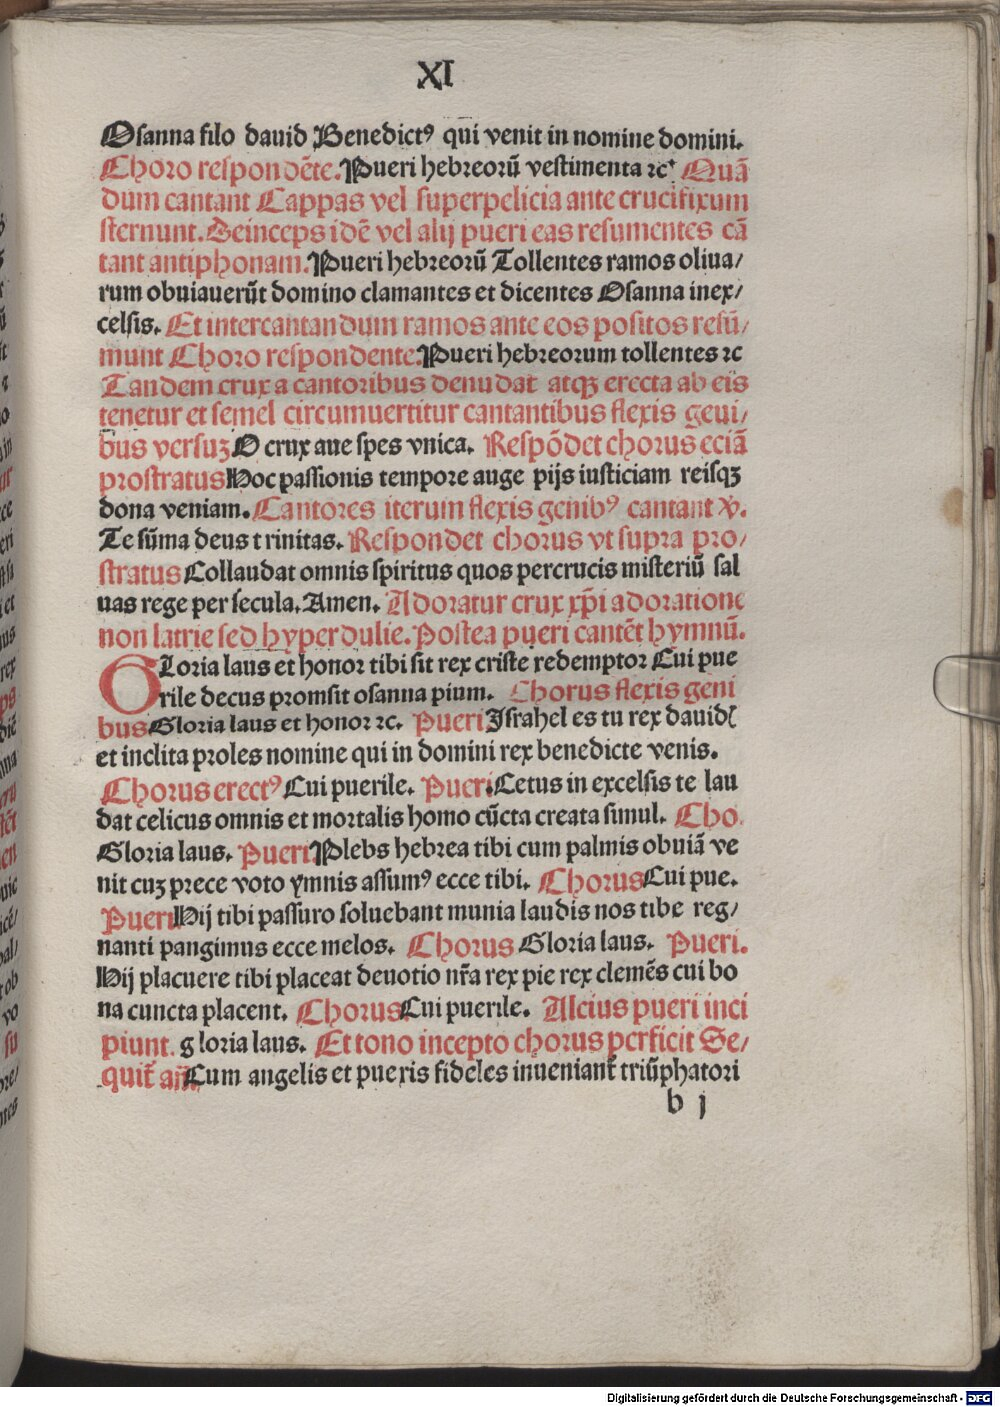 XI
Osanna filo dauid Benedictꝰ qui venit in nomine domini.
Choro respondēte. Pueri hebreorū vestimenta ⁊c Quā
dum cantant Cappas vel superpelicia ante crucifixum
sternunt. Deinceps idē vel alij pueri eas resumentes cā
tant antiphonam. Pueri hebreorū Tollentes ramos oliua/
rum obuiauerūt domino clamantes et dicentes Osanna inex/
celsis. Et intercantandum ramos ante eos positos resū/
munt Choro respondente. Pueri hebreorum tollentes ⁊c
Tandem crux a cantoribus denudat atqꝫ erecta ab eis
tenetur et semel circumuertitur cantantibus flexis geui/
bus versuꝫ O crux aue spes vnica. Respōdet chorus eciā
prostratus Hoc passionis tempore auge pijs iusticiam reisqꝫ
dona veniam. Cantores iterum flexis genibꝰ cantant ℣.
Te sūma deus trinitas. Respondet chorus vt supra pro/
stratus Collaudat omnis spiritus quos percrucis misteriū sal
uas rege per secula. Amen. Adoratur crux xp̄i adoratione
non latrie sed hyperdulie. Postea pueri cantēt hymnū.
GLoria laus et honor tibi sit rex criste redemptor Cui pue
rile decus promsit osanna pium. Chorus flexis geni
bus Gloria laus et honor ⁊c. Pueri Israhel es tu rex dauidſ
et inclita proles nomine qui in domini rex benedicte venis.
Chorus erectꝰ Cui puerile. Pueri. Cetus in excelsis te lau
dat celicus omnis et mortalis homo cūcta creata simul. Cho.
Gloria laus. Pueri Plebs hebrea tibi cum palmis obuiā ve
nit cuꝫ prece voto ymnis assumꝰ ecce tibi. Chorus Cui pue.
Pueri Hij tibi passuro soluebant munia laudis nos tibe reg/
nanti pangimus ecce melos. Chorus Gloria laus. Pueri.
Hij placuere tibi placeat deuotio nr̄a rex pie rex clemēs cui bo
na cuncta placent. Chorus Cui puerile. Alcius pueri inci
piunt. gloria laus. Et tono incepto chorus perficit Se/
quit̄ an̄. Cum angelis et puexis fideles inueniant̄ triūphatori
b j
Digitalisierung gefördert durch die Deutsche Forschungsgemeinschaft - DFG